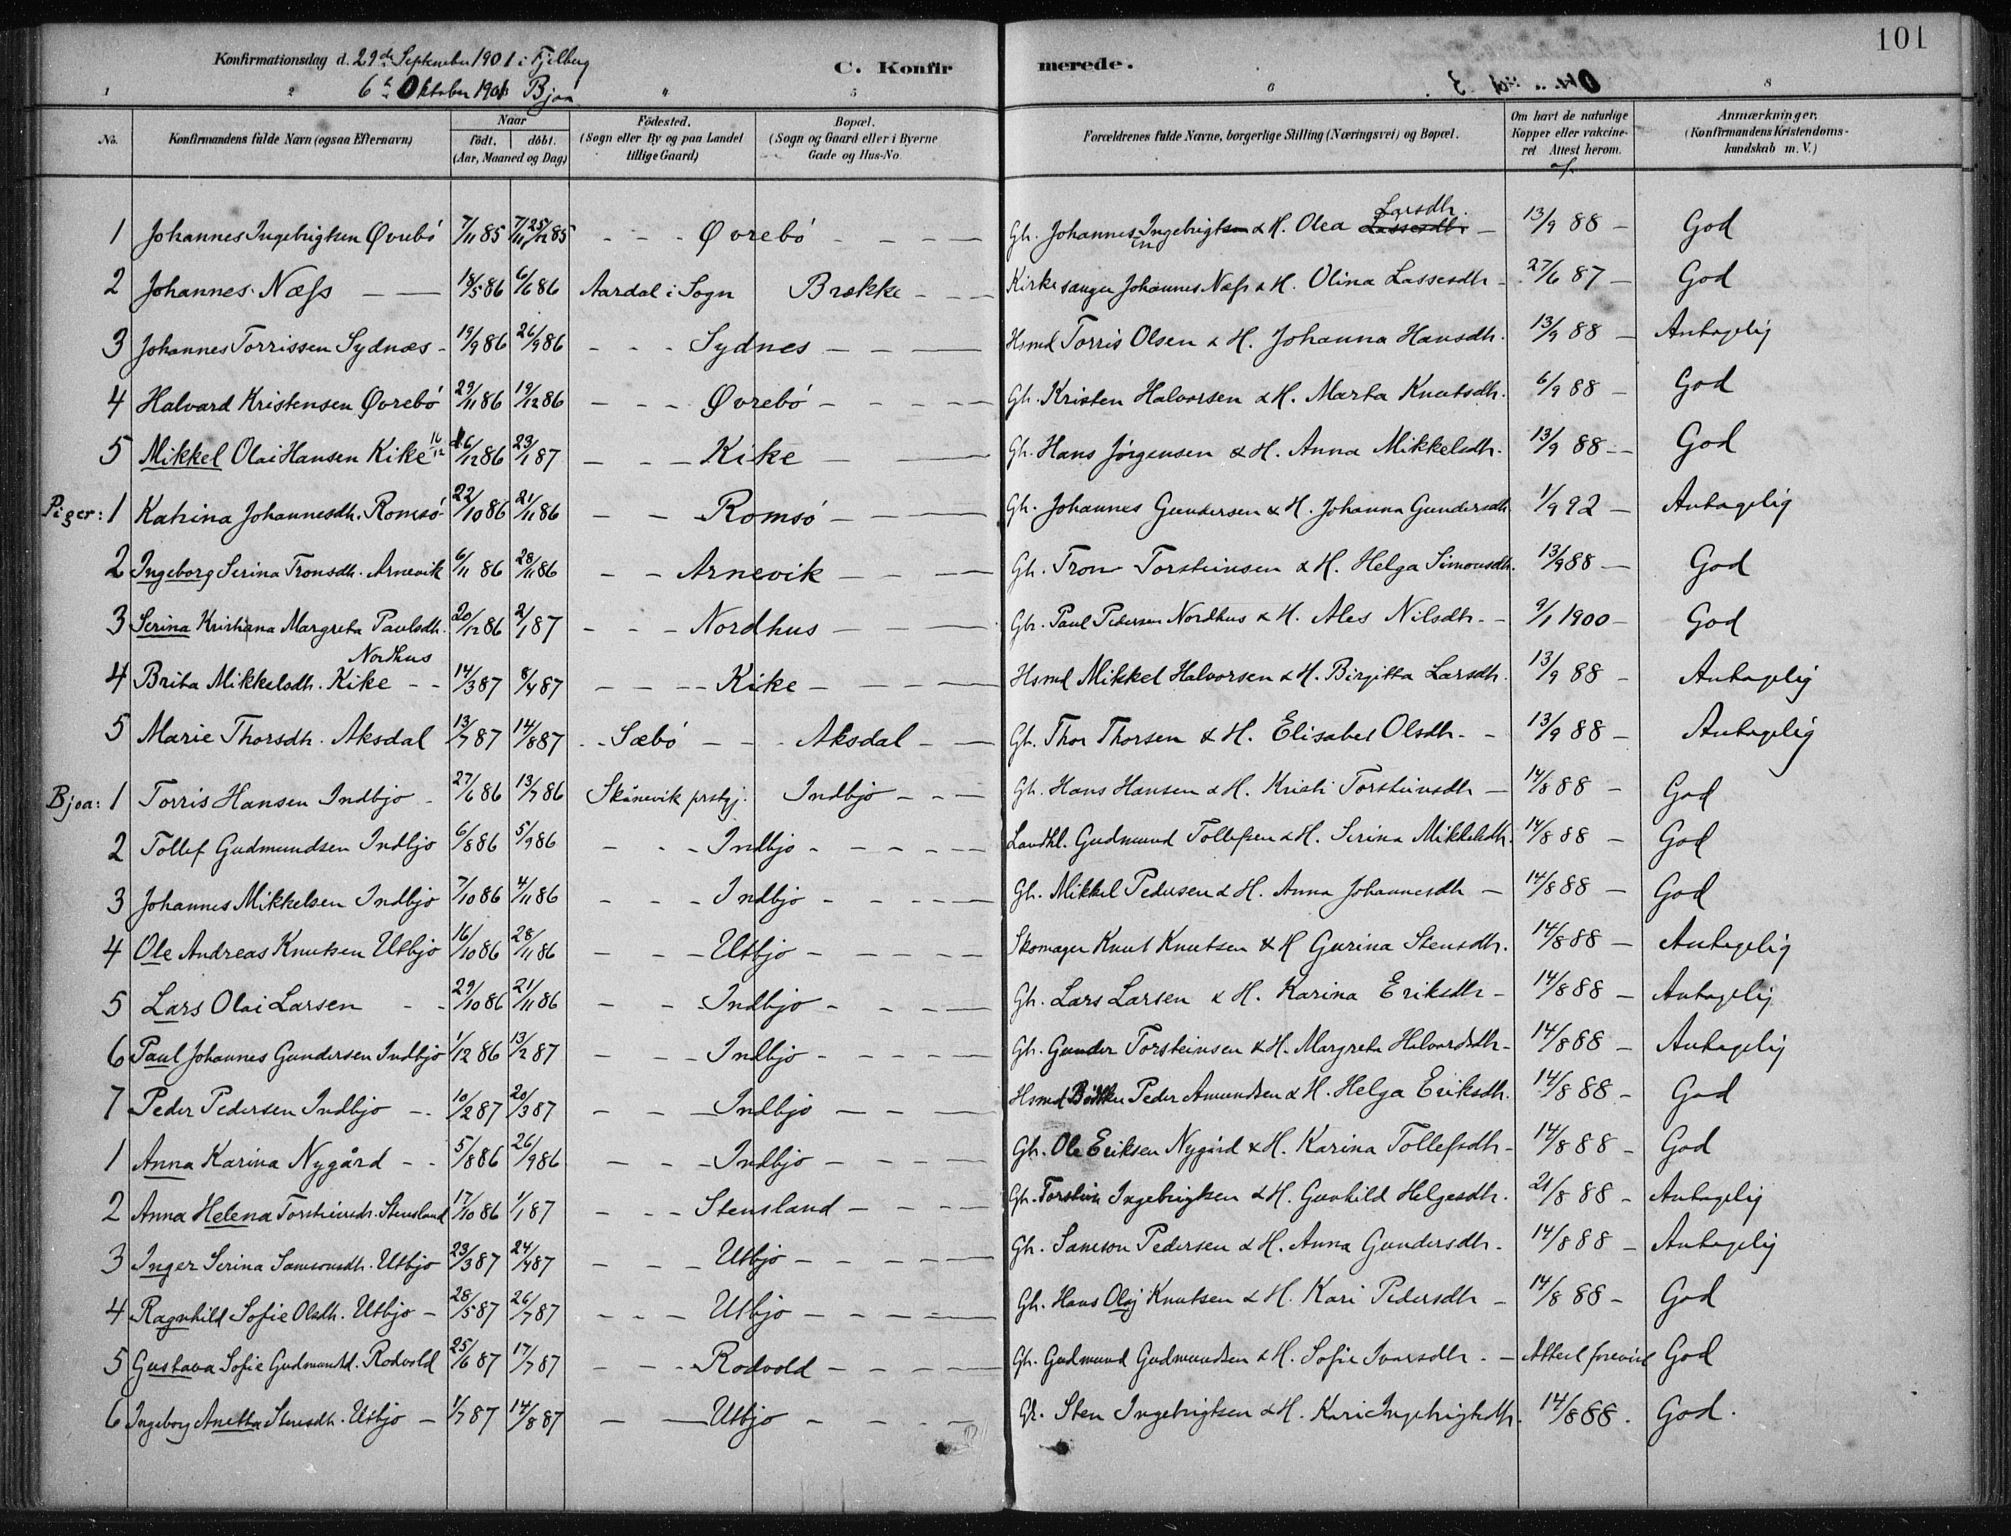 101
Konfirmationsdag d. 29de September 1901 i Fjelberg
6te Oktober 1901 Bjoa
C. Konfirmerede.
1 2 4 5 6 8
No. Konfirmandens fulde Navn (ogsaa Efternavn) Naar født. døbt. (Aar, Maaned og Dag) Fødested. (Sogn eller By og paa Landet tillige Gaard) Bopæl. (Sogn og Gaard eller i Byerne Gade og Hus-No. Forældrenes fulde Navne, borgerlige Stilling (Næringsvei) og Bopæl. Om havt de naturlige Kopper eller vakcineret Attest herom. Anmærkninger. (Konfirmandens Kristendomskundskab m. V.)
1 Johannes Ingebrigtsen Øvrebó 7/11 85 7/11 25/12 85 - - - Øvrebó - - - Gb. Johannes Ingebrigtsen & H. Olea Lassesdtr. Larsdtr. - 13/9 88 - God
2 Johannes Næss - - 18/5 86 6/6 86 Aardal i Sogn Brække - - - Kirkesanger Johannes Næss & H. Olina Lassesdtr - 27/6 87 - God
3 Johannes Torrissen Sydnæs - 19/9 86 26/9 86 - - - Sydnes - - - Hsmd Torris Olsen & H. Johanna Hansdtr. 13/9 88 - Antagelig
4 Halvard Kristensen Øvrebó 29/11 86 19/12 86 - - - Øvrebó - - - Gb. Kristen Halvorsen & H. Marta Knutsdtr. 6/9 88 - God
5 Mikkel Olai Hansen Kike 16/12 16/12 86 23/1 87 - - - Kike - - Gb. Hans Jørgensen & H. Anna Mikkelsdtr. 13/9 88 - God
Piger: 1 Katrina Johannesdtr. Romsó 22/10 86 21/11 86 - - Romsó - - - Gb. Johannes Gundersen & H. Johanna Gundersdtr 1/9 92 - Antagelig
2 Ingeborg Serina Tronsdtr. Arnevik 6/11 86 28/11 86 - - Arnevik - - - Gb. Tron Torsteinsen & H. Helga Simonsdtr. 13/9 88 - God
3 Serina Kristiana Margreta Paulsdtr. Nordhus 20/12 86 2/1 87 - - - Nordhus - - - Gbr. Paul Pedersen Nordhus & H. Ales Nilsdtr. - 9/1 1900 - God
4 Brita Mikkelsdtr. Kike - - 14/3 87 8/4 87 - - - Kike - - - Hsmd Mikkel Halvorsen & H. Birgitta Larsdtr. 13/9 88 - Antagelig
5 Marie Thorsdtr. Aksdal 13/7 87 14/8 87 - - Sæbó - - Aksdal - - Gb. Thor Thorsen & H. Elisabet Olsdtr. - 13/9 88 - Antagelig
Bjoa: 1 Torris Hansen Indbjo - 27/6 86 13/7 86 Skånevik prstgj. Indbjo - - - Gb. Hans Hansen & H. Kristi Torsteinsdtr - 14/8 88 - God
2 Tollef Gudmundsen Indbjo 6/8 86 5/9 86 - - - Indbjo - - - Gudmund Tollefsen & H. Serina Mikkelsdtr. 14/8 88 - God
3 Johannes Mikkelsen Indbjo 7/10 86 4/11 86 - - - Indbjo - - - Gb. Mikkel Pedersen & H. Anna Johannesdtr - 14/8 88 - God
4 Ole Andreas Knutsen Utbjo 16/10 86 28/11 86 - - - Utbjo - - - Skomager Knut Knutsen & H Gurina Stensdtr. 14/8 88 - Antagelig
5 Lars Olai Larsen - - 29/10 86 21/11 86 - - Indbjo - - - Gb. Lars Larsen & H. Karina Eriksdtr - 14/8 88 - Antagelig
6 Paul Johannes Gundersen Indbjo 1/12 86 13/2 87 - - - Indbjo - - - Gb. Gunder Torsteinsen & H. Margreta Halvardsdtr - 14/8 88 - Antagelig
7 Peder Pedersen Indbjo - - 10/2 87 20/3 87 - - - Indbjo - - - Hsmd Bødker Peder Amundsen & H. Helga Eriksdtr. 14/8 88 - God
1 Anna Karina Nygård - - 5/8 86 26/9 86 - - - Indbjo - - - Gb. Ole Eriksen Nygård & H. Karina Tollefsdtr - 14/8 88 - God
2 Anna Helena Torsteinsdtr. Stensland 17/10 86 1/1 87 - - - Stensland - - - Gb. Torstein Ingebrigtsen & H. Gunhild Helgesdtr. 21/8 88 - Antagelig
3 Inger Serina Samsonsdtr. Utbjo 23/3 87 24/4 87 - - - Utbjo - - - Gb. Samson Pedersen & H. Anna Gundersdtr - 14/8 88 - Antagelig
4 Ragnhild Sofie Olsdtr. Utbjo - 28/5 87 26/7 87 - - - Utbjo - - - Gb. Hans Olaj Knutsen & H. Kari Pedersdtr - 14/8 88 - God
5 Gustava Sofie Gudmundsd. Rodvold 25/6 87 17/7 87 - - - Rodvold - - - Gb. Gudmund Gudmundsen & H. Sofie Ivarsdtr - - Attest forevist God
6 Ingeborg Anetta Stensdtr. Utbjo - 1/7 87 14/8 87 - - Utbjo - - - Gb. Sten Ingebrigtsen & H. Kari Ingebrigtsdtr. 14/8 88. God.